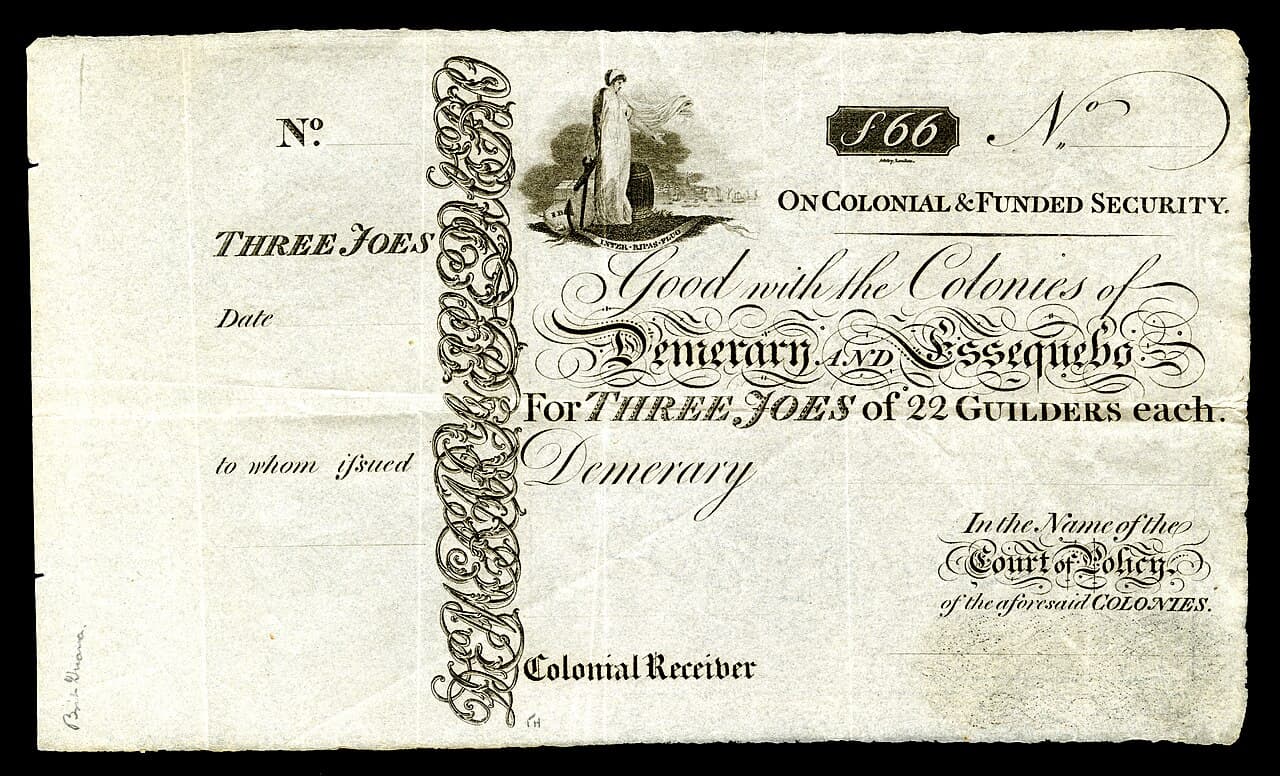 Nº.
THREE JOES
Date
to whom ifsued
ƒ66
Nº
ON COLONIAL & FUNDED SECURITY.
INTER·RIPAS·FLUO
Good with the Colonies of
Demerary AND Essequebo
For THREE JOES of 22 GUILDERS each.
Demerary
In the Name of the
Court of Policy,
of the aforesaid COLONIES.
Colonial Receiver